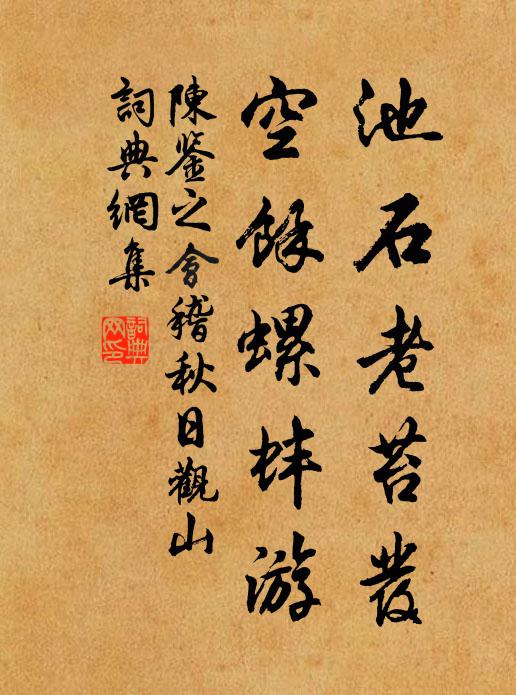 池石老苔發
空餘螺蚌游
陳鑒之會稽秋日觀山
詞典網集
詞典網印